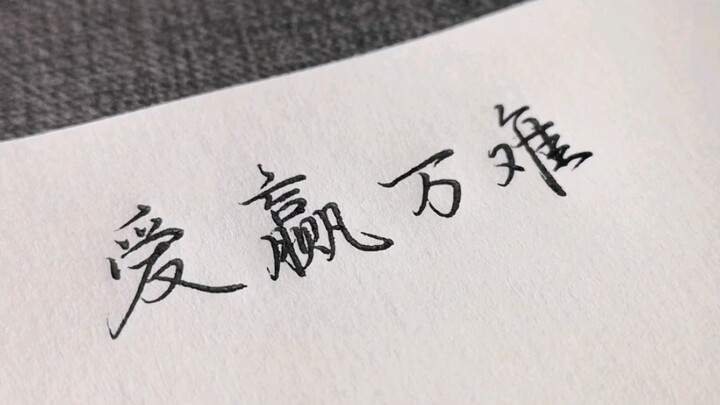 爱赢万难